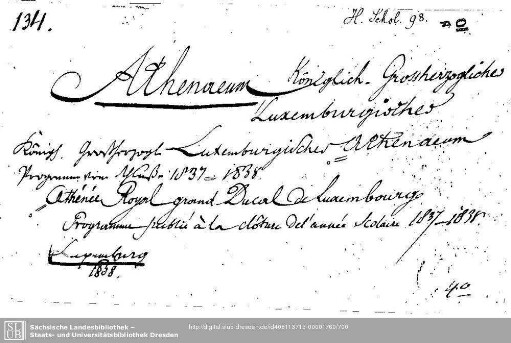 134.
H. Schol. 98.
Athenaeum Königlich-Grossherzogliches
Luxemburgisches
Königl. Grossherzogl. Luxemburgisches Athenaeum
Programm vom 1837-1838
Athénée Royal grand Ducal de Luxembourg
Programme publié à la clôture de l'année scolaire 1837-1838
Luxemburg
1838.
4º
Sächsische Landesbibliothek –
Staats- und Universitätsbibliothek Dresden